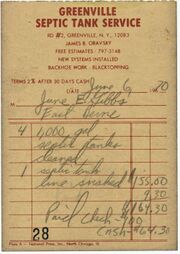 GREENVILLE
SEPTIC TANK SERVICE
RD #2, GREENVILLE, N. Y., 12083
JAMES B. ORAVSKY
FREE ESTIMATES - 797-3148
NEW SYSTEMS INSTALLED
BACKHOE WORK - BLACKTOPPING
TERMS 2% AFTER 30 DAYS CASH
DATE June 6 1970
June E. Gibbs
4 1,000 gal
septic tanks
cleaned
1 septic tank
line snaked $155.00
9.30
$164.30
Paid Check - 100
Cash - $64.30
28